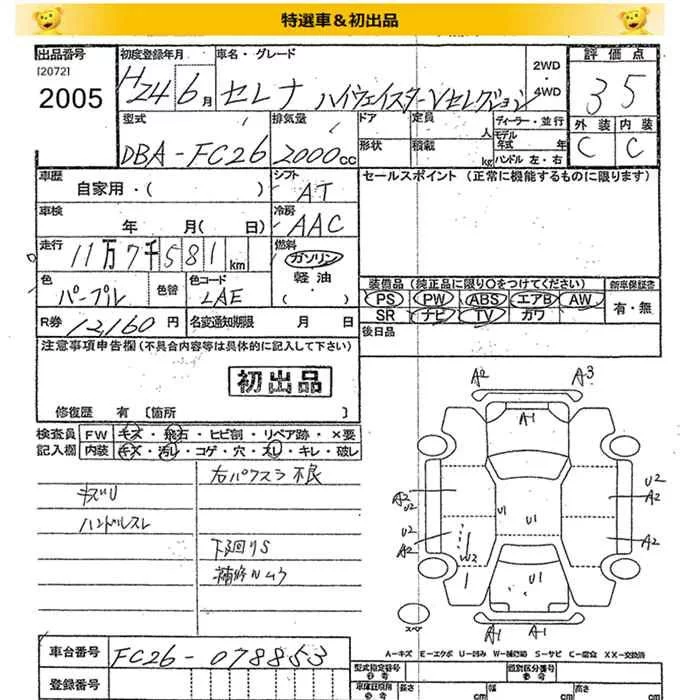 特選車＆初出品
出品番号 初度登録年月 車名・グレード 2WD ・ 4WD 評価点
[2072]
2005 H24 6月 セレナ ハイウェイスターVセレクション 3 5
型式 排気量 ドア 定員 人 ディーラー・並行 外装 内装
DBA-FC26 2000cc 形状 積載 kg モデル年式 年 ハンドル 左・右 C C
車歴 自家用・( ) シフト AT セールスポイント (正常に機能するものに限ります)
車検 年 月( 日) 冷房 AAC
走行 11万7千581km 燃料 ガソリン 軽油 ・
色 パープル 色替 色コード LAE 装備品 (純正品に限り○をつけてください) 新車保証書
PS PW ABS エアB AW 有・無
SR ナビ TV カワ
R券 12,160円 名変通知期限 月 日 後日品
注意事項申告欄 (不具合内容等は具体的に記入して下さい)
初出品
修復歴 有 〔箇所 〕
検査員 FW キズ・飛石・ヒビ割・リペア跡・×要
記入欄 内装 キズ・汚レ・コゲ・穴・スレ・キレ・破レ
右パワスラ不良
キズU
ハンドルスレ
下廻りS
補修ムラ
A2 A3
A1
A2 U2 U2 A2
U1 U1
U2 A2 W2 A2
U1
スペア A1 A1
A-キズ E-エクボ U-凹み W-補修跡 S-サビ C-腐食 XX-交換済
車台番号 FC26-078853 型式指定番号 参考 類別区分番号 参考
登録番号 車体証期所 参考 長さ cm 幅 cm 高さ cm